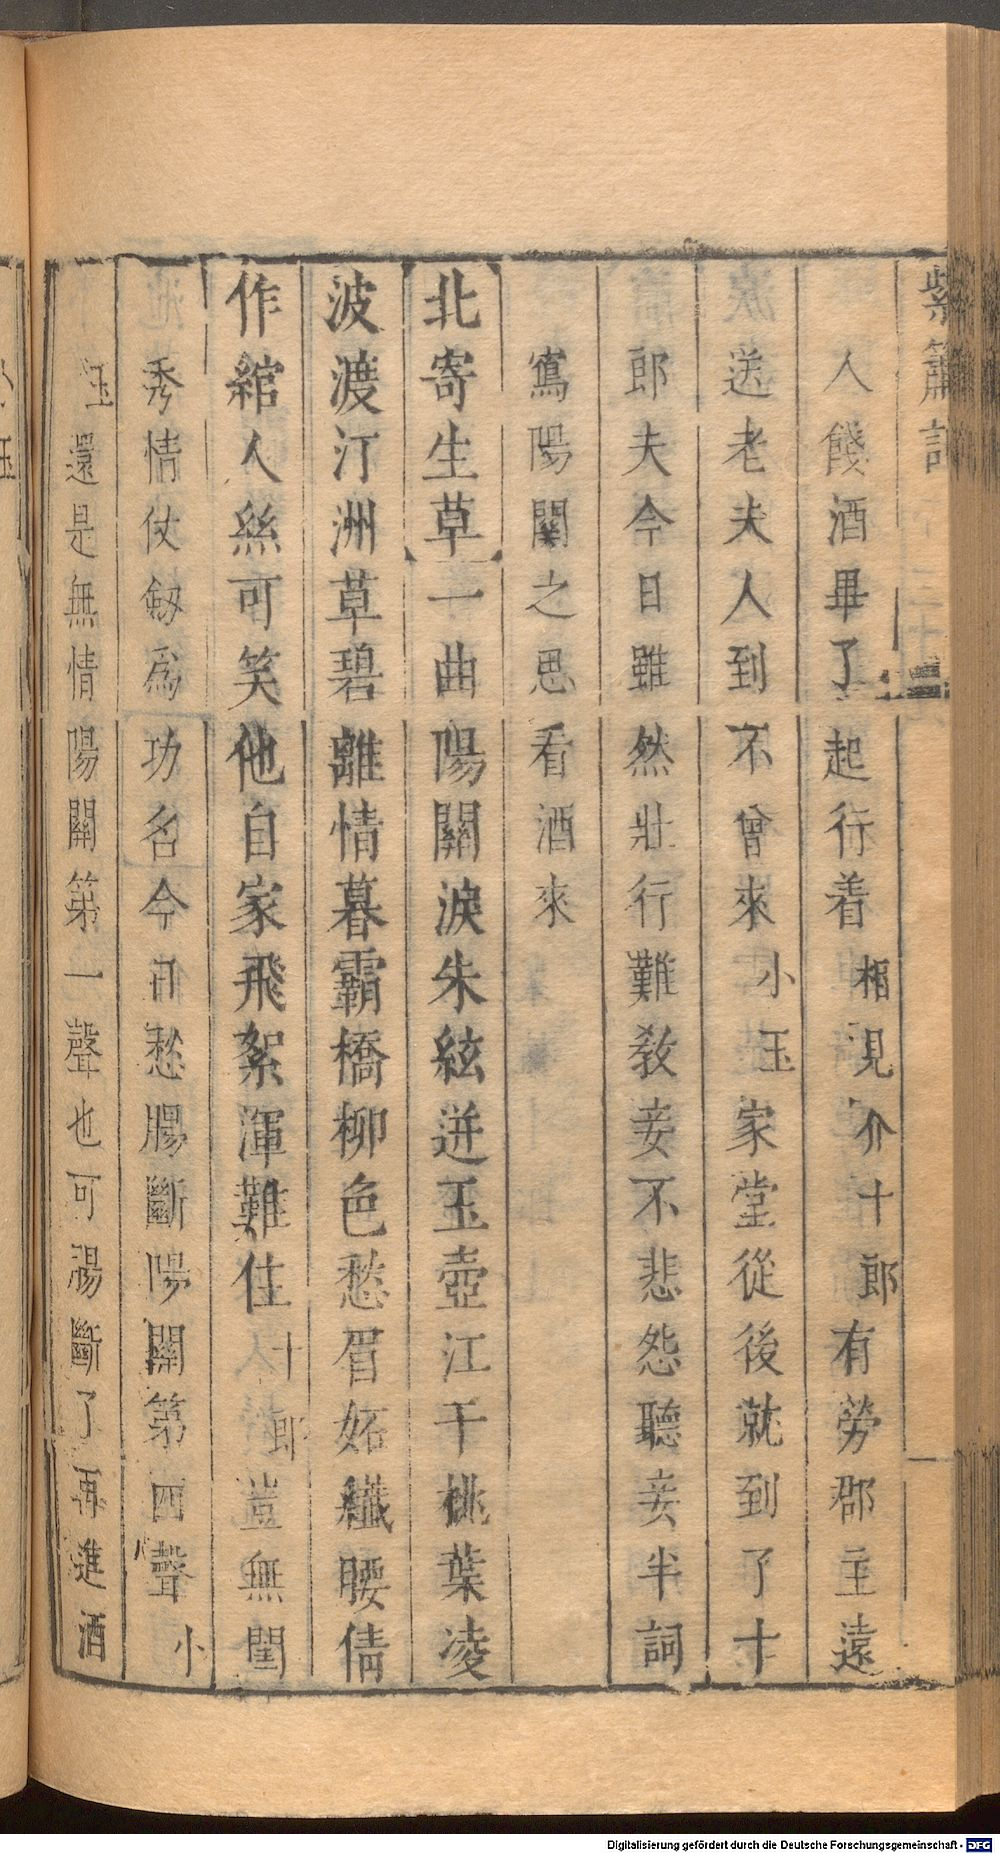 紫簫記
人餞酒畢了起行着相見介十郎有勞郡主遠
送老夫人到不曾來小玉家堂從後就到了十
郎夫今日雖然壯行難教妾不悲怨聽妾半詞
寫陽關之思看酒來
北寄生草一曲陽關淚朱絃迸玉壺江干桃葉凌
波渡汀洲草碧離情暮霸橋柳色愁眉妬纖腰倩
作綰人絲可笑他自家飛絮渾難住十郎豈無閨
秀情仗劒爲功名今日愁腸斷陽關第四聲小
玉還是無情陽關第一聲也可腸斷了再進酒
Digitalisierung gefördert durch die Deutsche Forschungsgemeinschaft - DFG